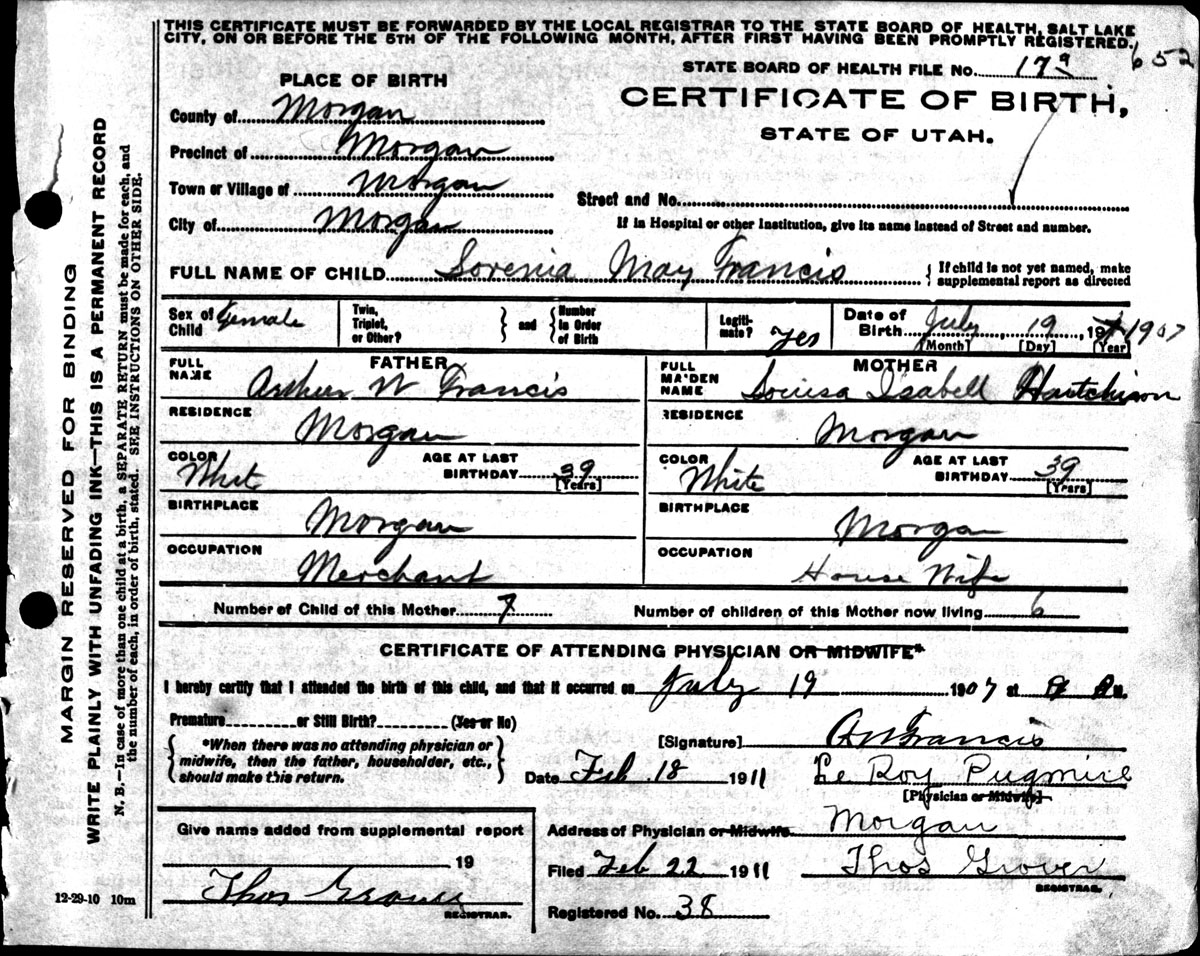 THIS CERTIFICATE MUST BE FORWARDED BY THE LOCAL REGISTRAR TO THE STATE BOARD OF HEALTH, SALT LAKE
CITY, ON OR BEFORE THE 5TH OF THE FOLLOWING MONTH, AFTER FIRST HAVING BEEN PROMPTLY REGISTERED.
652
STATE BOARD OF HEALTH FILE No. 179
PLACE OF BIRTH
CERTIFICATE OF BIRTH,
STATE OF UTAH.
County of Morgan
Precinct of Morgan
Town or Village of Morgan
Street and No.
City of Morgan
If in Hospital or other Institution, give its name instead of Street and number.
FULL NAME OF CHILD Sorenia May Francis
{ If child is not yet named, make
supplemental report as directed
Sex of Child Female
Twin, Triplet, or Other? } and { Number in Order of Birth
Legiti-mate? yes
Date of Birth July 19, 1907
[Month] [Day] [Year]
FATHER
FULL NAME Arthur W Francis
RESIDENCE
Morgan
COLOR White
AGE AT LAST BIRTHDAY 39
[Years]
BIRTHPLACE
Morgan
OCCUPATION
Merchant
MOTHER
FULL MAIDEN NAME Louisa Isabell Hutchison
RESIDENCE
Morgan
COLOR White
AGE AT LAST BIRTHDAY 39
[Years]
BIRTHPLACE
Morgan
OCCUPATION
House Wife
Number of Child of this Mother 7 Number of children of this Mother now living 6
CERTIFICATE OF ATTENDING PHYSICIAN OR MIDWIFE*
I hereby certify that I attended the birth of this child, and that it occurred on July 19 1907 at M.
Premature or Still Birth? (Yes or No)
{ *When there was no attending physician or
midwife, then the father, householder, etc.,
should make this return. }
[Signature] A W Francis
Date Feb 18 1911 Le Roy Pugmire
[Physician or Midwife]
Give name added from supplemental report
19
Thos Grover
REGISTRAR.
Address of Physician or Midwife Morgan
Filed Feb 22 1911 Thos Grover
REGISTRAR.
Registered No. 38
12-29-10 10m
MARGIN RESERVED FOR BINDING
WRITE PLAINLY WITH UNFADING INK—THIS IS A PERMANENT RECORD
N. B.—In case of more than one child at a birth, a SEPARATE RETURN must be made for each, and
the number of each, in order of birth, stated. SEE INSTRUCTIONS ON OTHER SIDE.